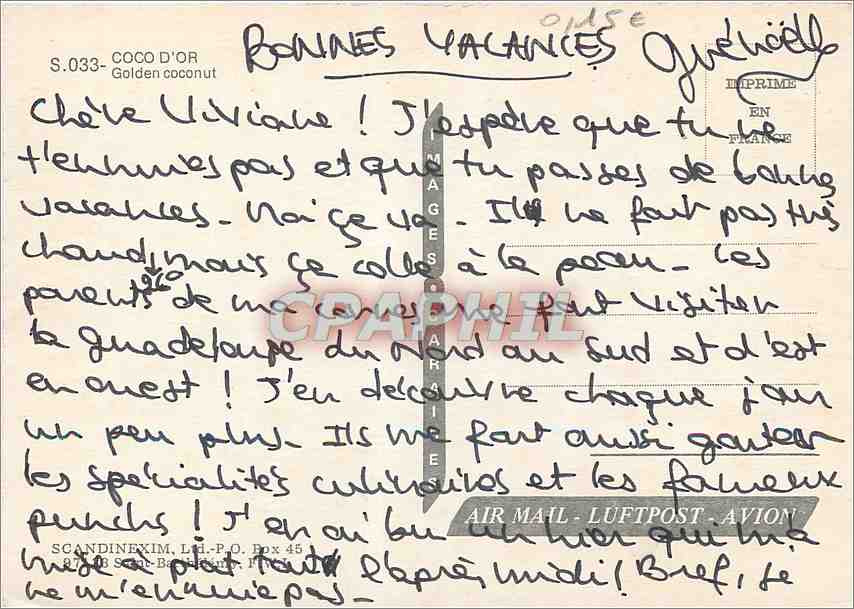 0,15€
BONNES VACANCES
S.033- COCO D'OR
Golden coconut
IMPRIME
EN
FRANCE
Chère Viviane ! J'espère que tu ne
t'ennuies pas et que tu passes de bonnes
vacances - Moi ça va - Il ne fait pas très
chaud, mais ça colle à la peau - Les
parents de ma corres me font visiter
la Guadeloupe du Nord au Sud et d'est
en ouest ! J'en découvre chaque jour
un peu plus - Ils me font aussi gouter
les spécialités culinaires et les fameux
punchs ! J'en ai bu un hier qui m'a
mise à plat tout l'après midi ! Bref, je
ne m'ennuie pas -
IMAGES CARAIBES
CPAPHIL
AIR MAIL - LUFTPOST - AVION
SCANDINEXIM, Ltd.-P.O. Box 45